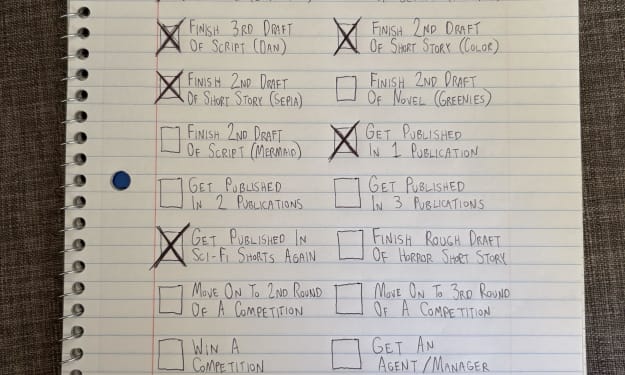 Finish 3rd Draft
Of Script (Dan)
Finish 2nd Draft
Of Short Story (Color)
Finish 2nd Draft
Of Short Story (Sepia)
Finish 2nd Draft
Of Novel (Greenies)
Finish 2nd Draft
Of Script (Mermaid)
Get Published
In 1 Publication
Get Published
In 2 Publications
Get Published
In 3 Publications
Get Published In
Sci-Fi Shorts Again
Finish Rough Draft
Of Horror Short Story
Move On To 2nd Round
Of A Competition
Move On To 3rd Round
Of A Competition
Win A
Competition
Get An
Agent/Manager